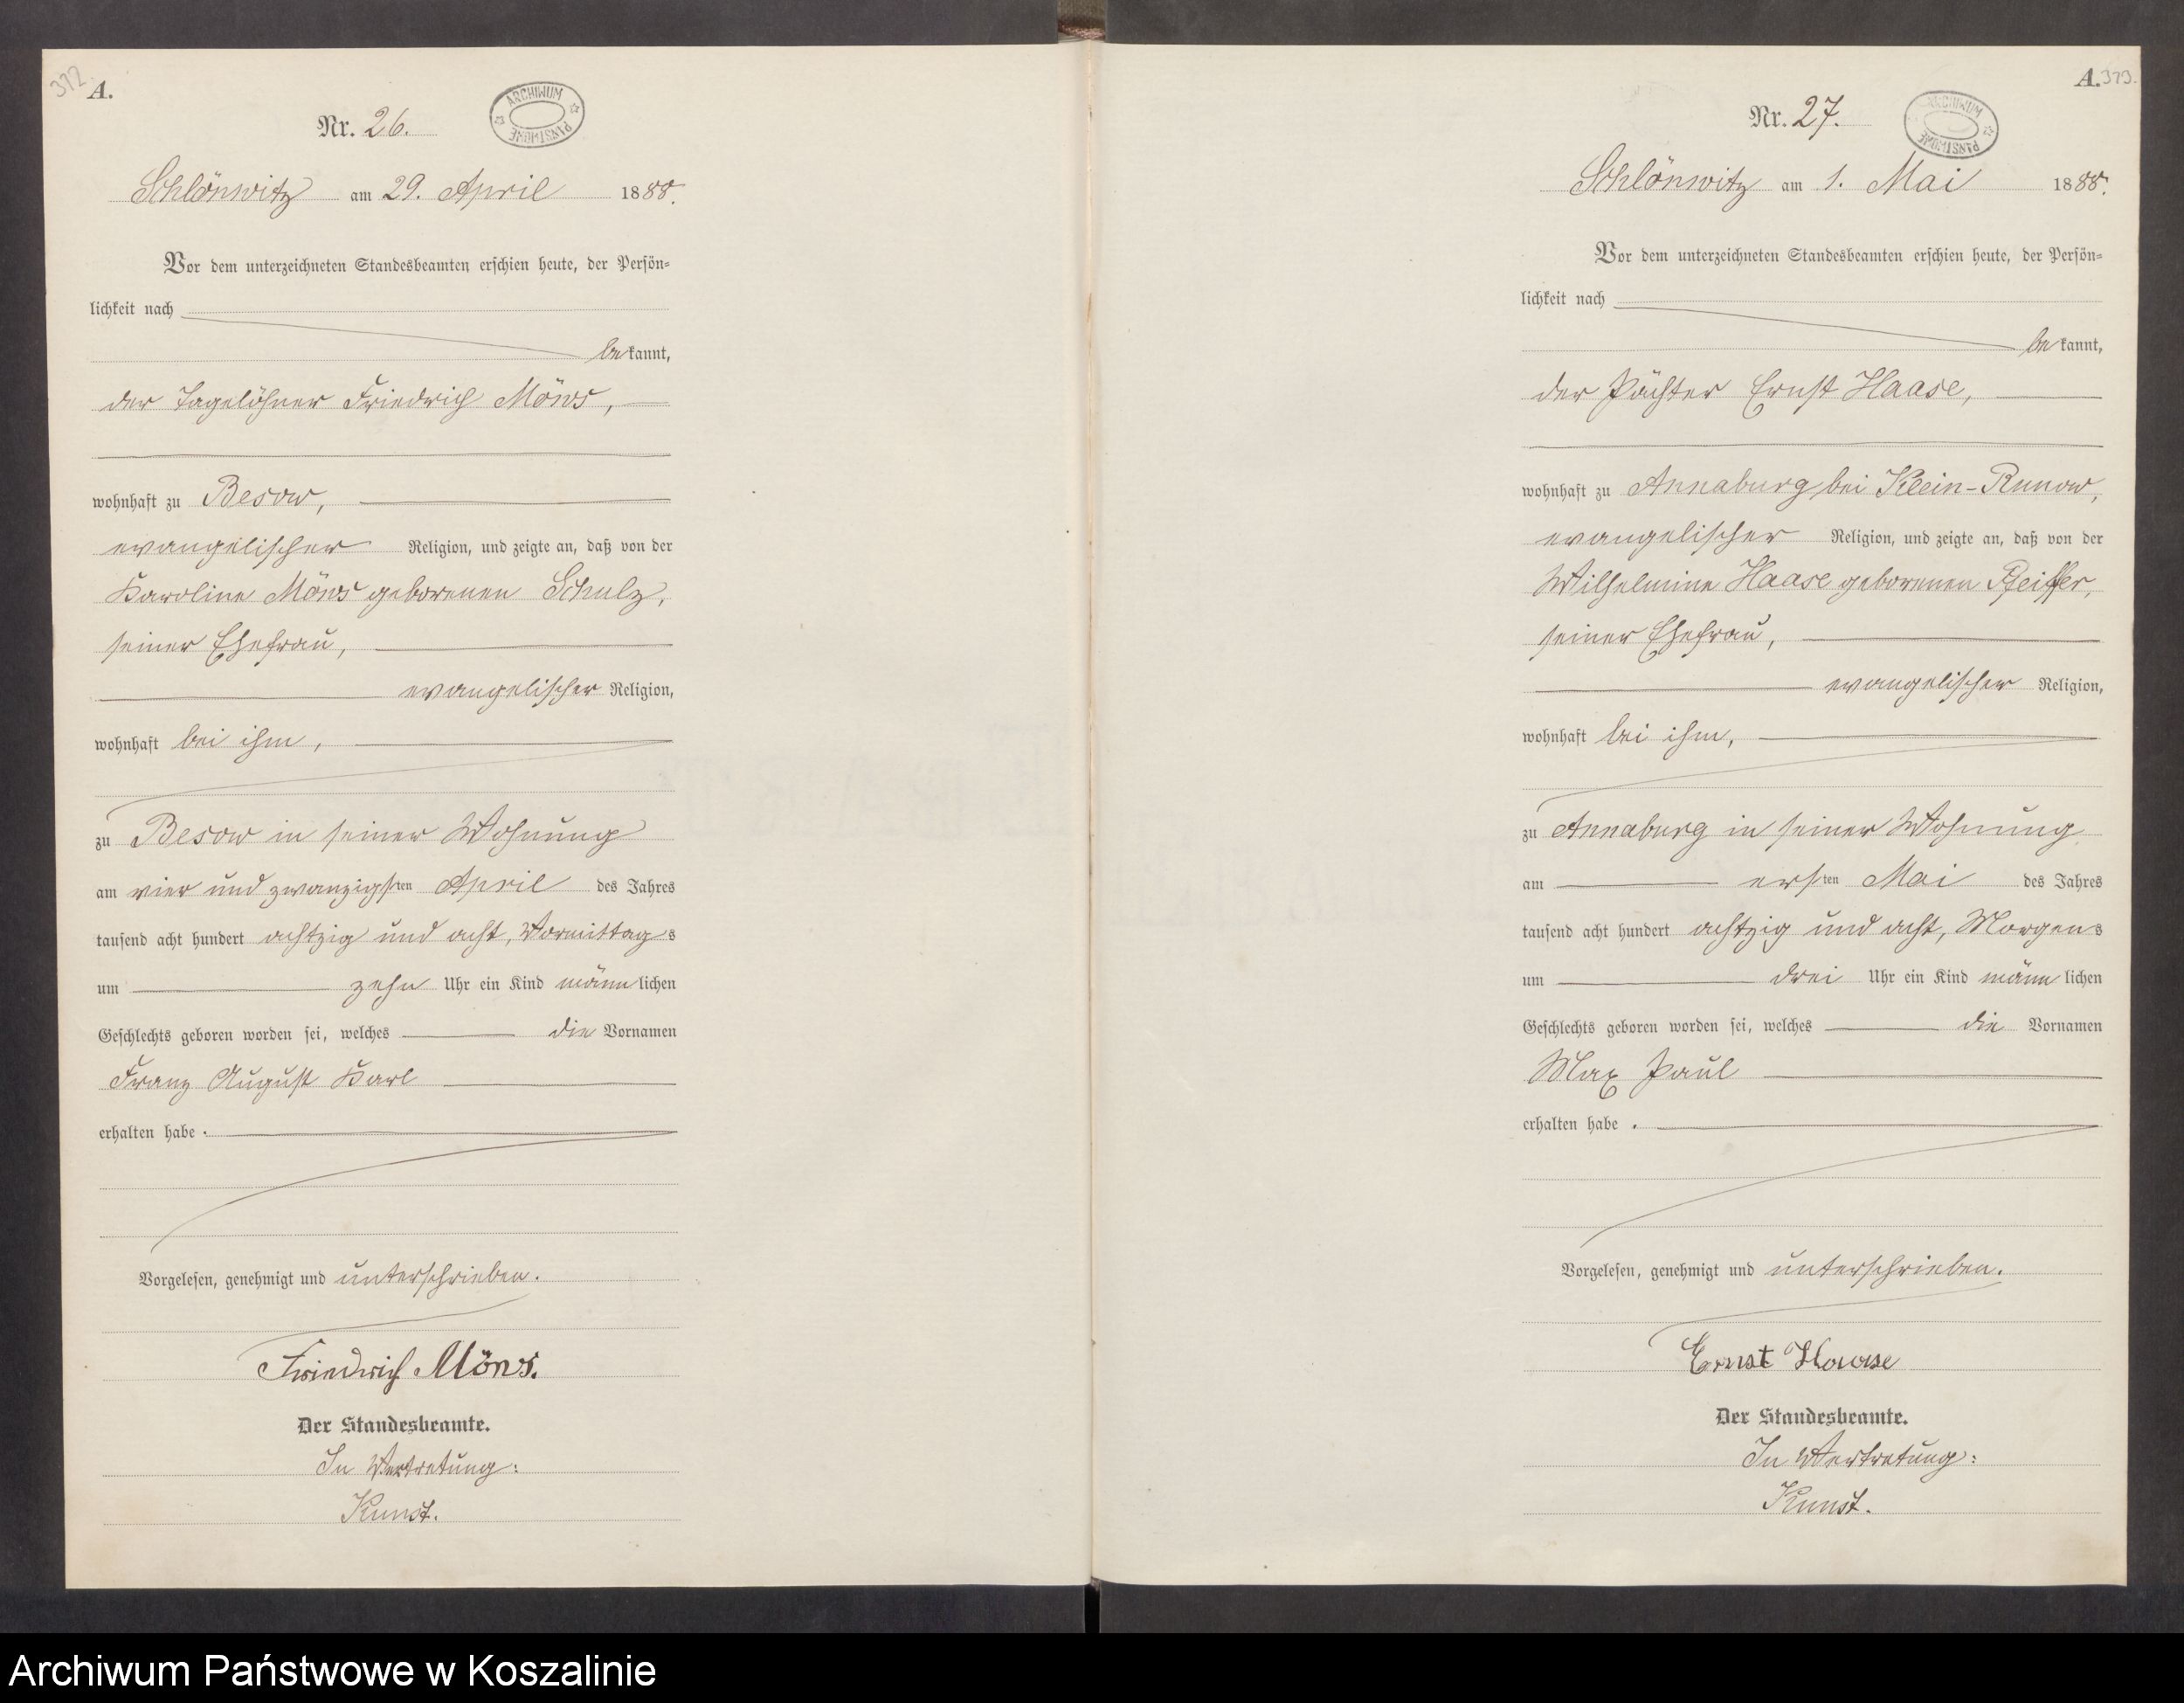 372
A.
Nr. 26.
ARCHIWUM PAŃSTWOWE
Schlönwitz am 29. April 1888.
Vor dem unterzeichneten Standesbeamten erschien heute, der Persön=
lichkeit nach
bekannt,
der Tagelöhner Friedrich Möws,
wohnhaft zu Besow,
evangelischer Religion, und zeigte an, daß von der
Karoline Möws geborenen Schulz,
seiner Ehefrau,
evangelischer Religion,
wohnhaft bei ihm,
zu Besow in seiner Wohnung
am vier und zwanzigsten April des Jahres
tausend acht hundert achtzig und acht, Vormittags
um zehn Uhr ein Kind männlichen
Geschlechts geboren worden sei, welches die Vornamen
Franz August Karl
erhalten habe.
Vorgelesen, genehmigt und unterschrieben.
Friedrich Möws.
Der Standesbeamte.
In Vertretung:
Kunst.
A. 373.
Nr. 27.
ARCHIWUM PAŃSTWOWE
Schlönwitz am 1. Mai 1888.
Vor dem unterzeichneten Standesbeamten erschien heute, der Persön=
lichkeit nach
bekannt,
der Pächter Ernst Haase,
wohnhaft zu Annaburg bei Klein-Runow,
evangelischer Religion, und zeigte an, daß von der
Wilhelmine Haase geborenen Pfeiffer,
seiner Ehefrau,
evangelischer Religion,
wohnhaft bei ihm,
zu Annaburg in seiner Wohnung
am ersten Mai des Jahres
tausend acht hundert achtzig und acht, Morgens
um drei Uhr ein Kind männlichen
Geschlechts geboren worden sei, welches die Vornamen
Max Paul
erhalten habe.
Vorgelesen, genehmigt und unterschrieben.
Ernst Haase
Der Standesbeamte.
In Vertretung:
Kunst.
Archiwum Państwowe w Koszalinie